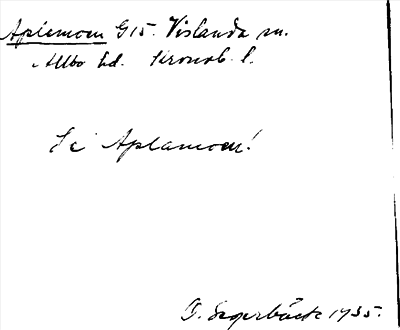 Aplemoen G15. Vislanda sn.
Allbo hd. Kronob. l.
Se Aplamoen!
D. Segerbäck 1935.